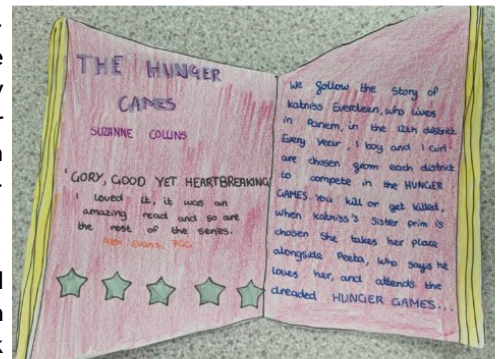 THE HUNGER
GAMES
SUZANNE COLLINS
'GORY, GOOD YET HEARTBREAKING
I loved it, it was an
amazing read and so are
the rest of the series.
Evans,
We follow the story of
Katniss Everdean, who lives
in Panem, in the 12th district.
Every Year, 1 boy and 1 girl
are chosen from each district
to compete in the HUNGER
GAMES. You kill or get killed,
when Katniss's sister prim is
chosen she takes her place
alongside Peeta, who says he
loves her, and attends the
dreaded HUNGER GAMES...